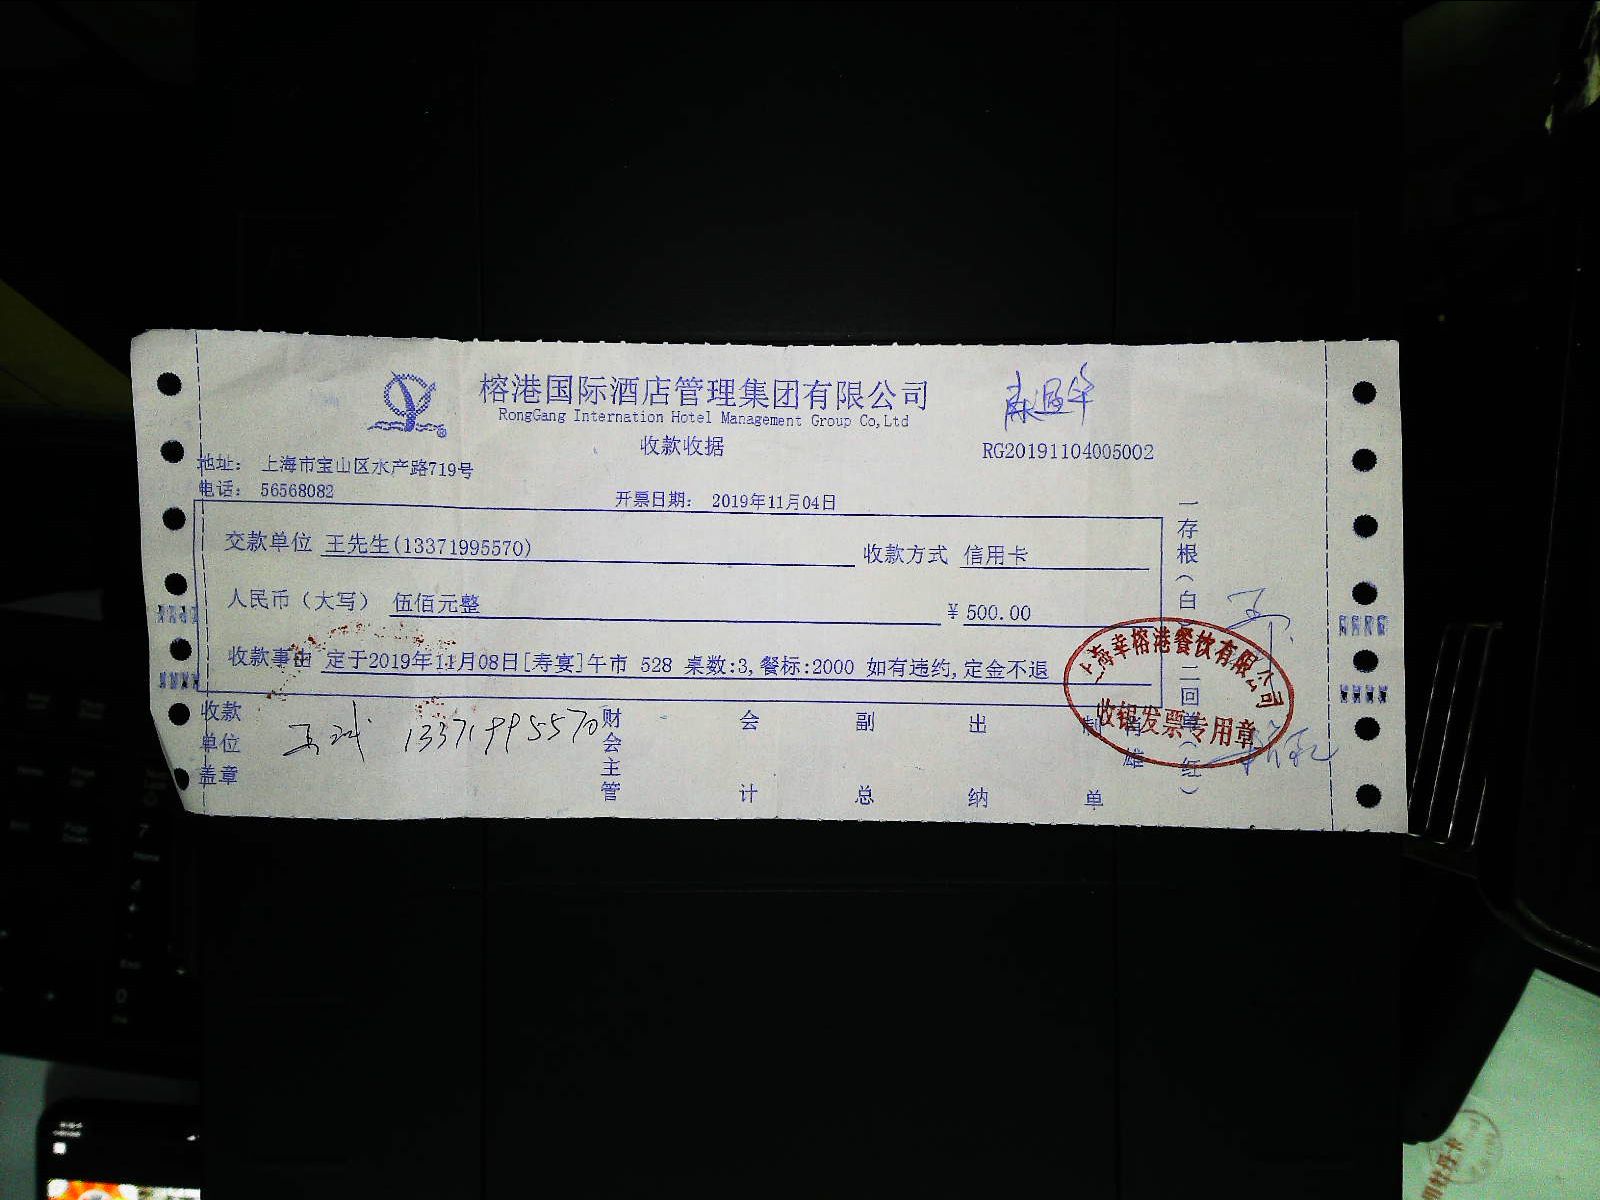 榕港国际酒店管理集团有限公司
RongGang Internation Hotel Management Group Co,Ltd
收款收据
RG20191104005002
地址： 上海市宝山区水产路719号
电话： 56568082
开票日期： 2019年11月04日
交款单位 王先生(13371995570)
收款方式 信用卡
人民币（大写） 伍佰元整
¥ 500.00
收款事由 定于2019年11月08日[寿宴]午市 528 桌数:3,餐标:2000 如有违约,定金不退
一存根(白) 二回单(红)
上海幸榕港餐饮有限公司
收银发票专用章
收款单位盖章
13371995570
财会主管
会计
副总
出纳
制单